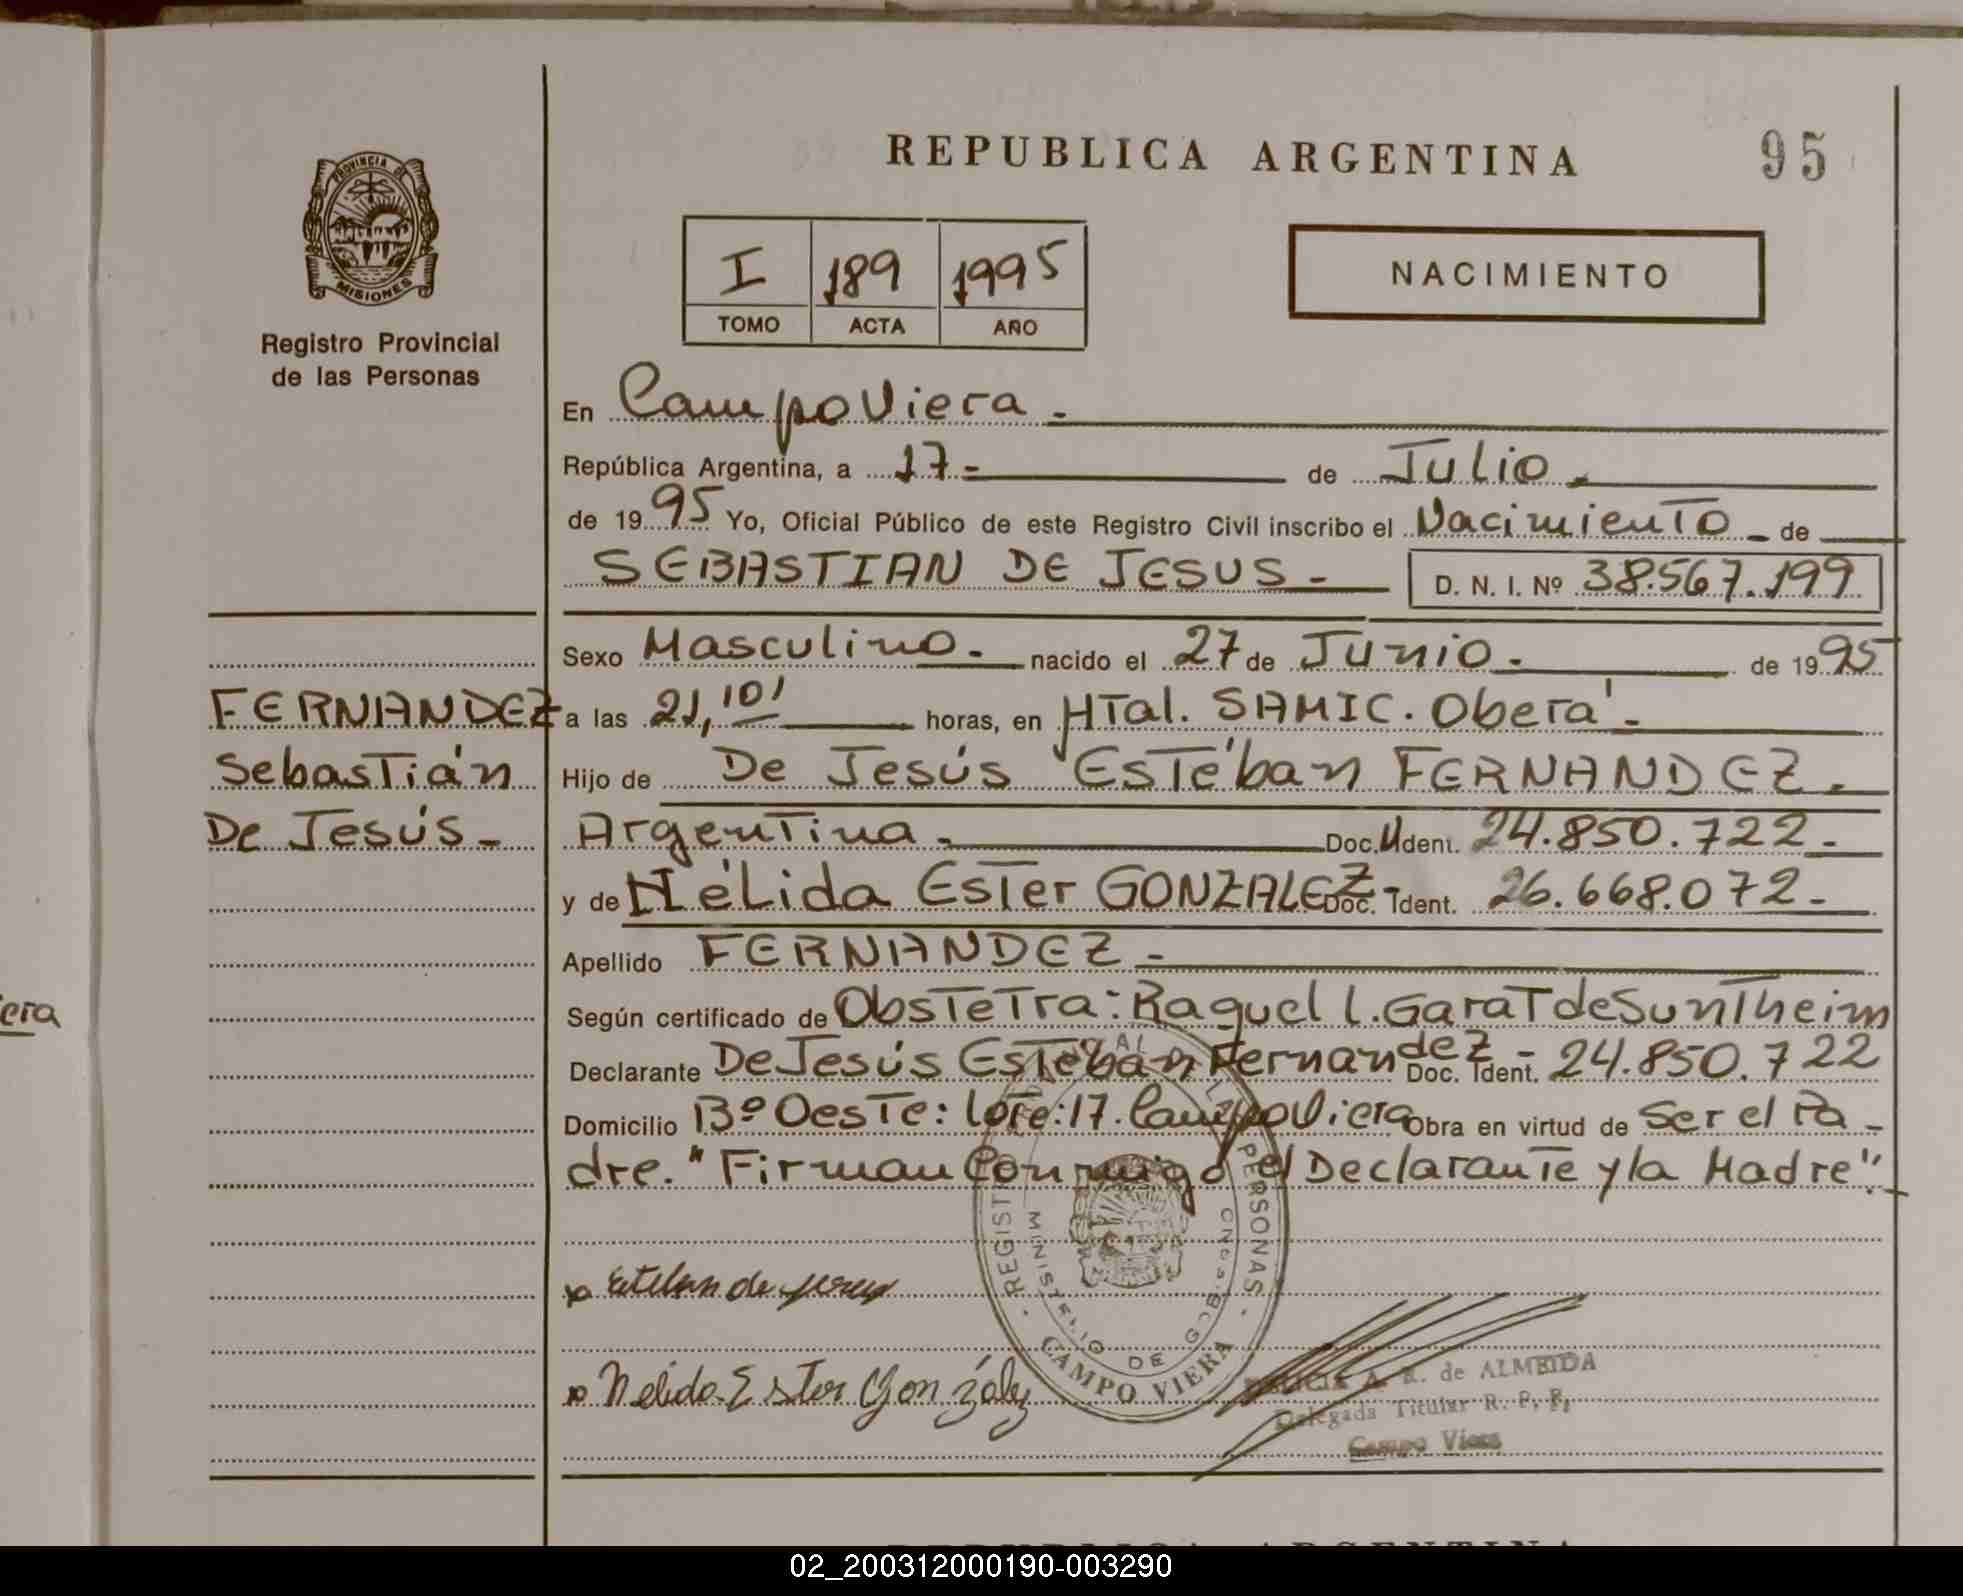 REPUBLICA ARGENTINA
95
PROVINCIA DE
MISIONES
Registro Provincial
de las Personas
I 189 1995
TOMO ACTA AÑO
NACIMIENTO
En Campo Viera.
República Argentina, a 17- de Julio.
de 1995 Yo, Oficial Público de este Registro Civil inscribo el Nacimiento de
SEBASTIAN DE JESUS- D. N. I. Nº 38.567.199
Sexo Masculino. nacido el 27 de Junio. de 1995
FERNANDEZ
Sebastián
De Jesús-
a las 21,10' horas, en HTal. SAMIC. Oberá.
Hijo de De Jesús Estéban FERNANDEZ.
Argentina. Doc. Ident. 24.850.722-
y de Nélida Ester GONZALEZ- Doc. Ident. 26.668.072-
Apellido FERNANDEZ-
Según certificado de Obstetra: Raquel L. Garat de Suntheim
Declarante De Jesús Estéban Fernandez- Doc. Ident. 24.850.722
Domicilio Bº Oeste: Lote: 17. Campo Viera Obra en virtud de Ser el Pa-
dre. "Firman Conmigo el Declarante y la Madre".
Esteban de Jesus
Nelida Ester Gonzalez
REGISTRO PROVINCIAL DE LAS PERSONAS
MINISTERIO DE GOBIERNO
CAMPO VIERA
A. R. de ALMEIDA
Delegada Titular R. P. P.
Campo Viera
era
REPUBLICA ARGENTINA
02_200312000190-003290